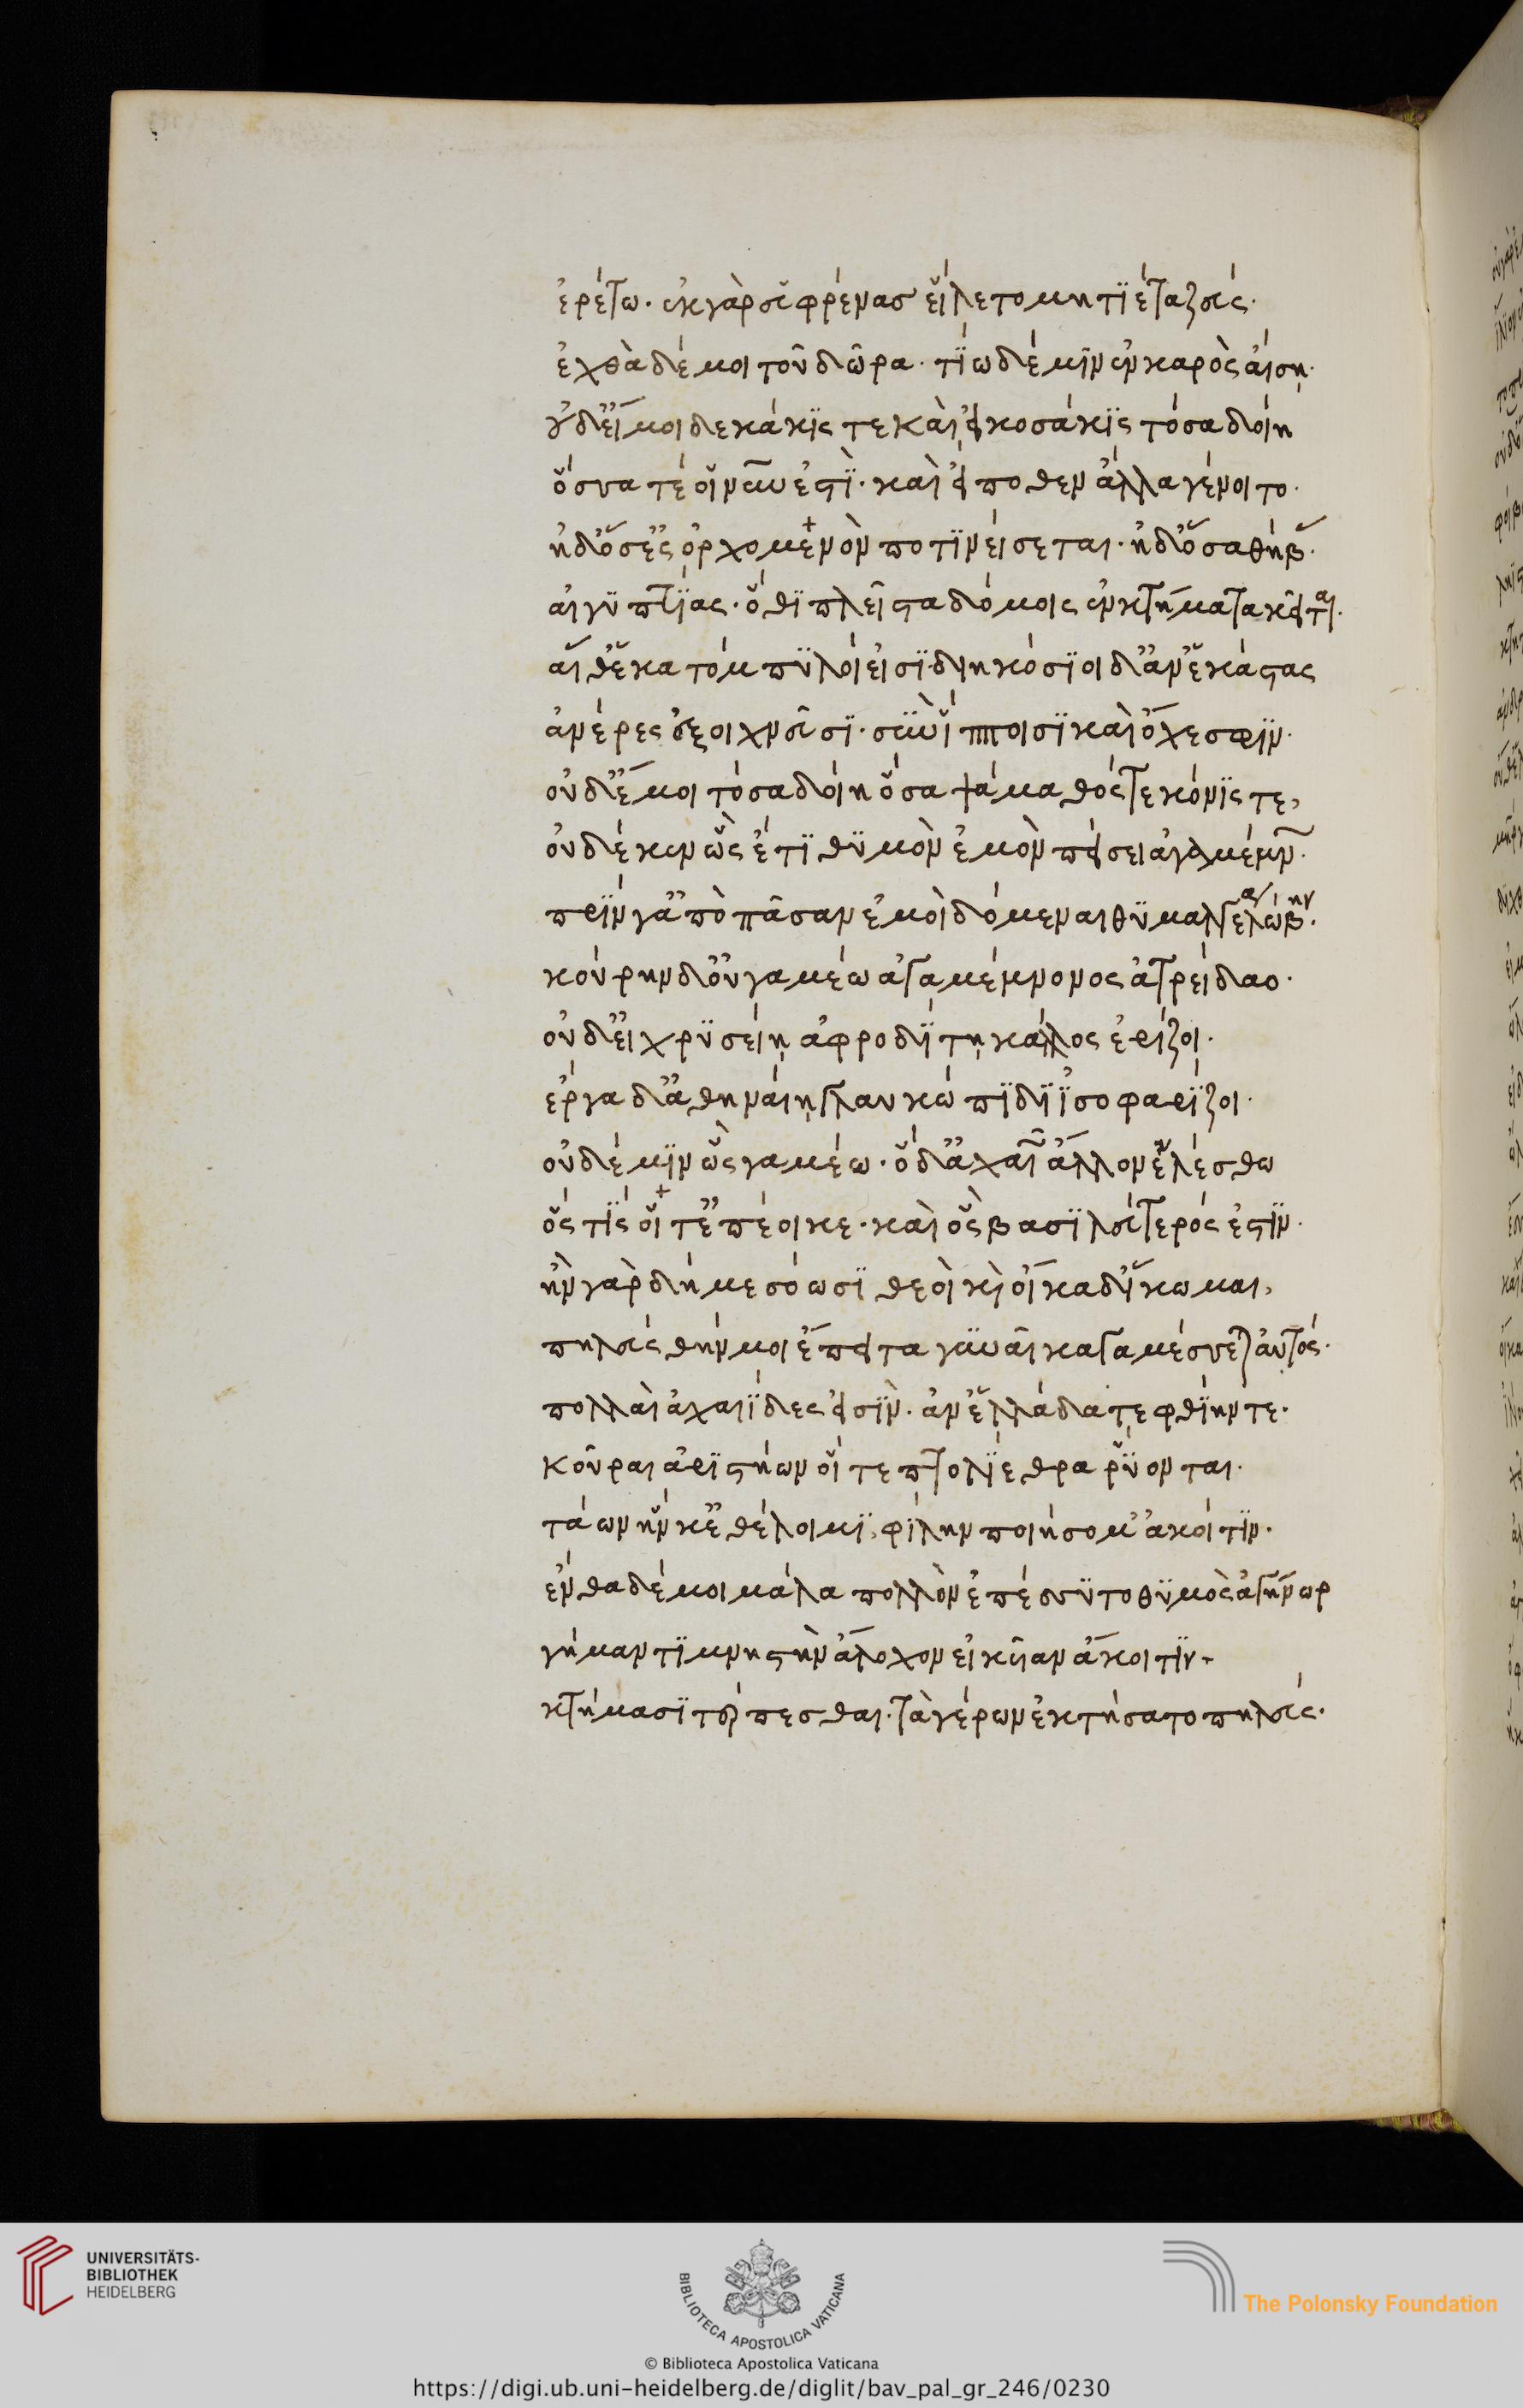 ἐρέτω. ἐκ γὰρ εὖ φρένας εἵλετο μητίετα ζεύς.
ἐχθρὰ δέ μοι τοῦ δῶρα. τίω δέ μιν ἐν καρὸς αἴσῃ.
οὐδ' εἴ μοι δεκάκις τε καὶ εἰκοσάκις τόσα δοίη
ὅσσα τέ οἱ νῦν ἐστὶ. καὶ εἴ ποθεν ἄλλα γένοιτο.
ἠδ' ὅσ' ἐς ὀρχομενὸν ποτινείσεται. ἠδ' ὅσα θήβ.
αἰγυπτίας. ὅθι πλεῖστα δόμοις ἐν κτήματα κεῖται.
αἵ θ' ἑκατόμπυλοί εἰσι διηκόσιοι δ' ἀν' ἑκάστας
ἀνέρες ἐξοιχνεῦσι. σὺν ἵπποισι καὶ ὄχεσφιν.
οὐδ' εἴ μοι τόσα δοίη ὅσα ψάμαθός τε κόνις τε,
οὐδέ κεν ὣς ἔτι θυμὸν ἐμὸν πείσει ἀγαμέμν.
πρίν γ' ἀπὸ πᾶσαν ἐμοὶ δόμεναι θυμαλγέα λώβην.
κούρην δ' οὐ γαμέω ἀγαμέμνονος ἀτρείδαο.
οὐδ' εἰ χρυσείῃ ἀφροδίτῃ κάλλος ἐρίζοι.
ἔργα δ' ἀθηναίῃ γλαυκώπιδι ἰσοφαρίζοι.
οὐδέ μιν ὣς γαμέω. ὁ δ' ἀχαιῶν ἄλλον ἑλέσθω
ὅς τίς οἵ τ' ἐπέοικε. καὶ ὃς βασιλεύτερός ἐστιν.
ἢν γὰρ δή με σόωσι θεοὶ κὶ οἴκαδ' ἵκωμαι,
πηλεύς θήν μοι ἔπειτα γυναῖκα γαμέσσεται αὐτός.
πολλαὶ ἀχαιΐδες εἰσὶν. ἀν' ἑλλάδα τε φθίην τε.
κοῦραι ἀριστήων οἵ τε πτολίεθρα ῥύονται.
τάων ἥν κ' ἐθέλοιμι, φίλην ποιήσομ' ἄκοιτιν.
ἔνθα δέ μοι μάλα πολλὸν ἐπέσσυτο θυμὸς ἀγήνωρ
γήμαντι μνηστὴν ἄλοχον εἰκυῖαν ἄκοιτιν.
κτήμασι τέρπεσθαι. τὰ γέρων ἐκτήσατο πηλεύς.
UNIVERSITÄTS-
BIBLIOTHEK
HEIDELBERG
BIBLIOTECA APOSTOLICA VATICANA
The Polonsky Foundation
© Biblioteca Apostolica Vaticana
https://digi.ub.uni-heidelberg.de/diglit/bav_pal_gr_246/0230